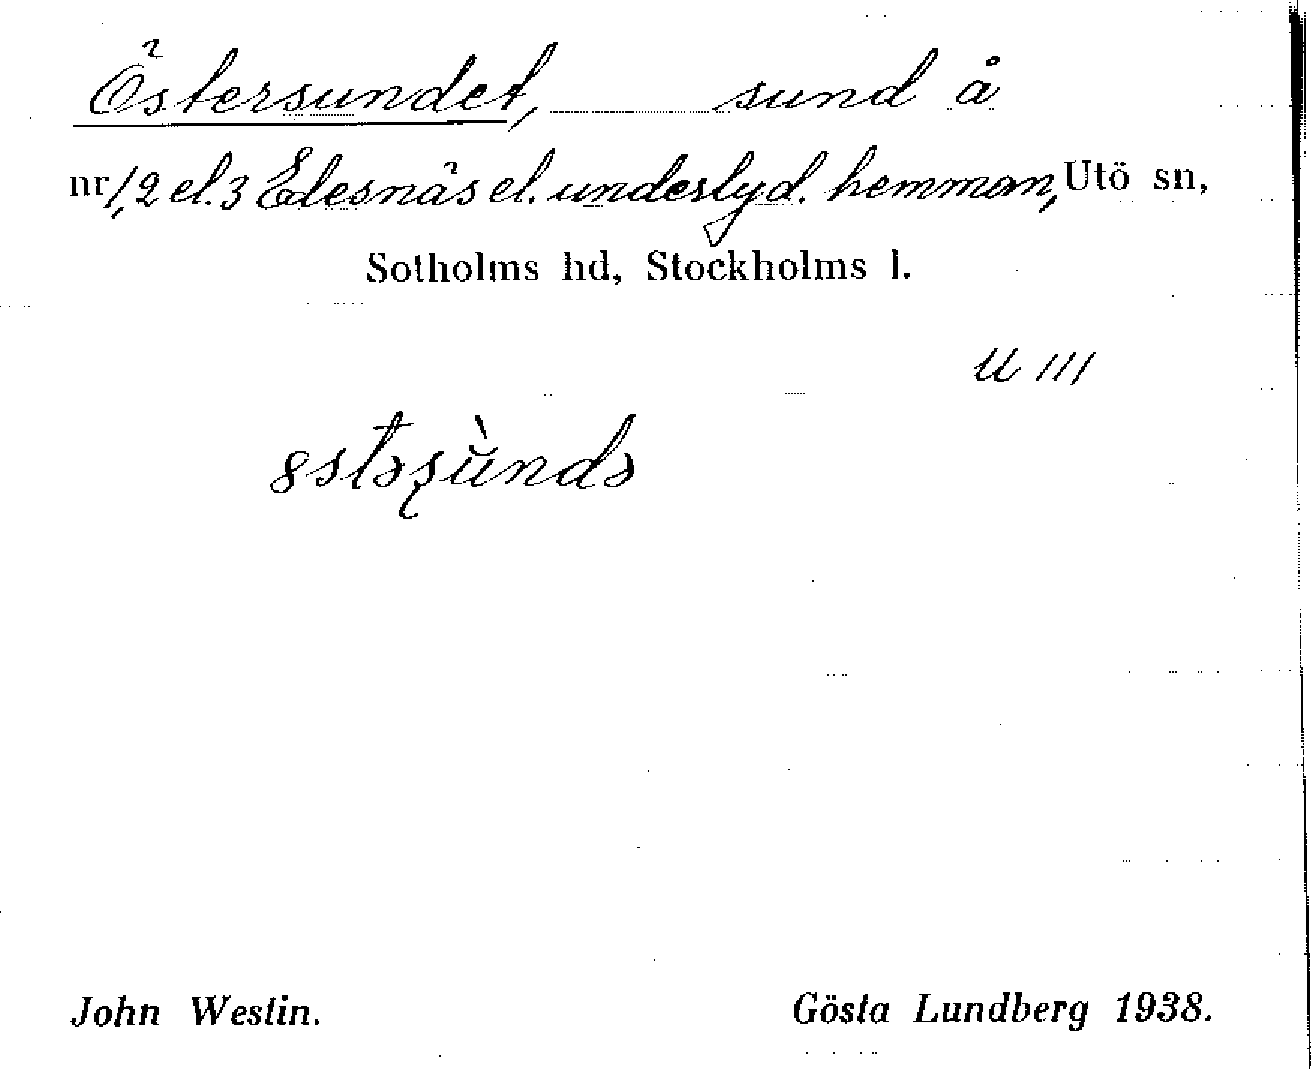 Östersundet, sund å
nr 1, 2 el. 3 Edesnäs el. underlyd. hemman, Utö sn,
Sotholms hd, Stockholms l.
U III
John Westin. Gösta Lundberg 1938.